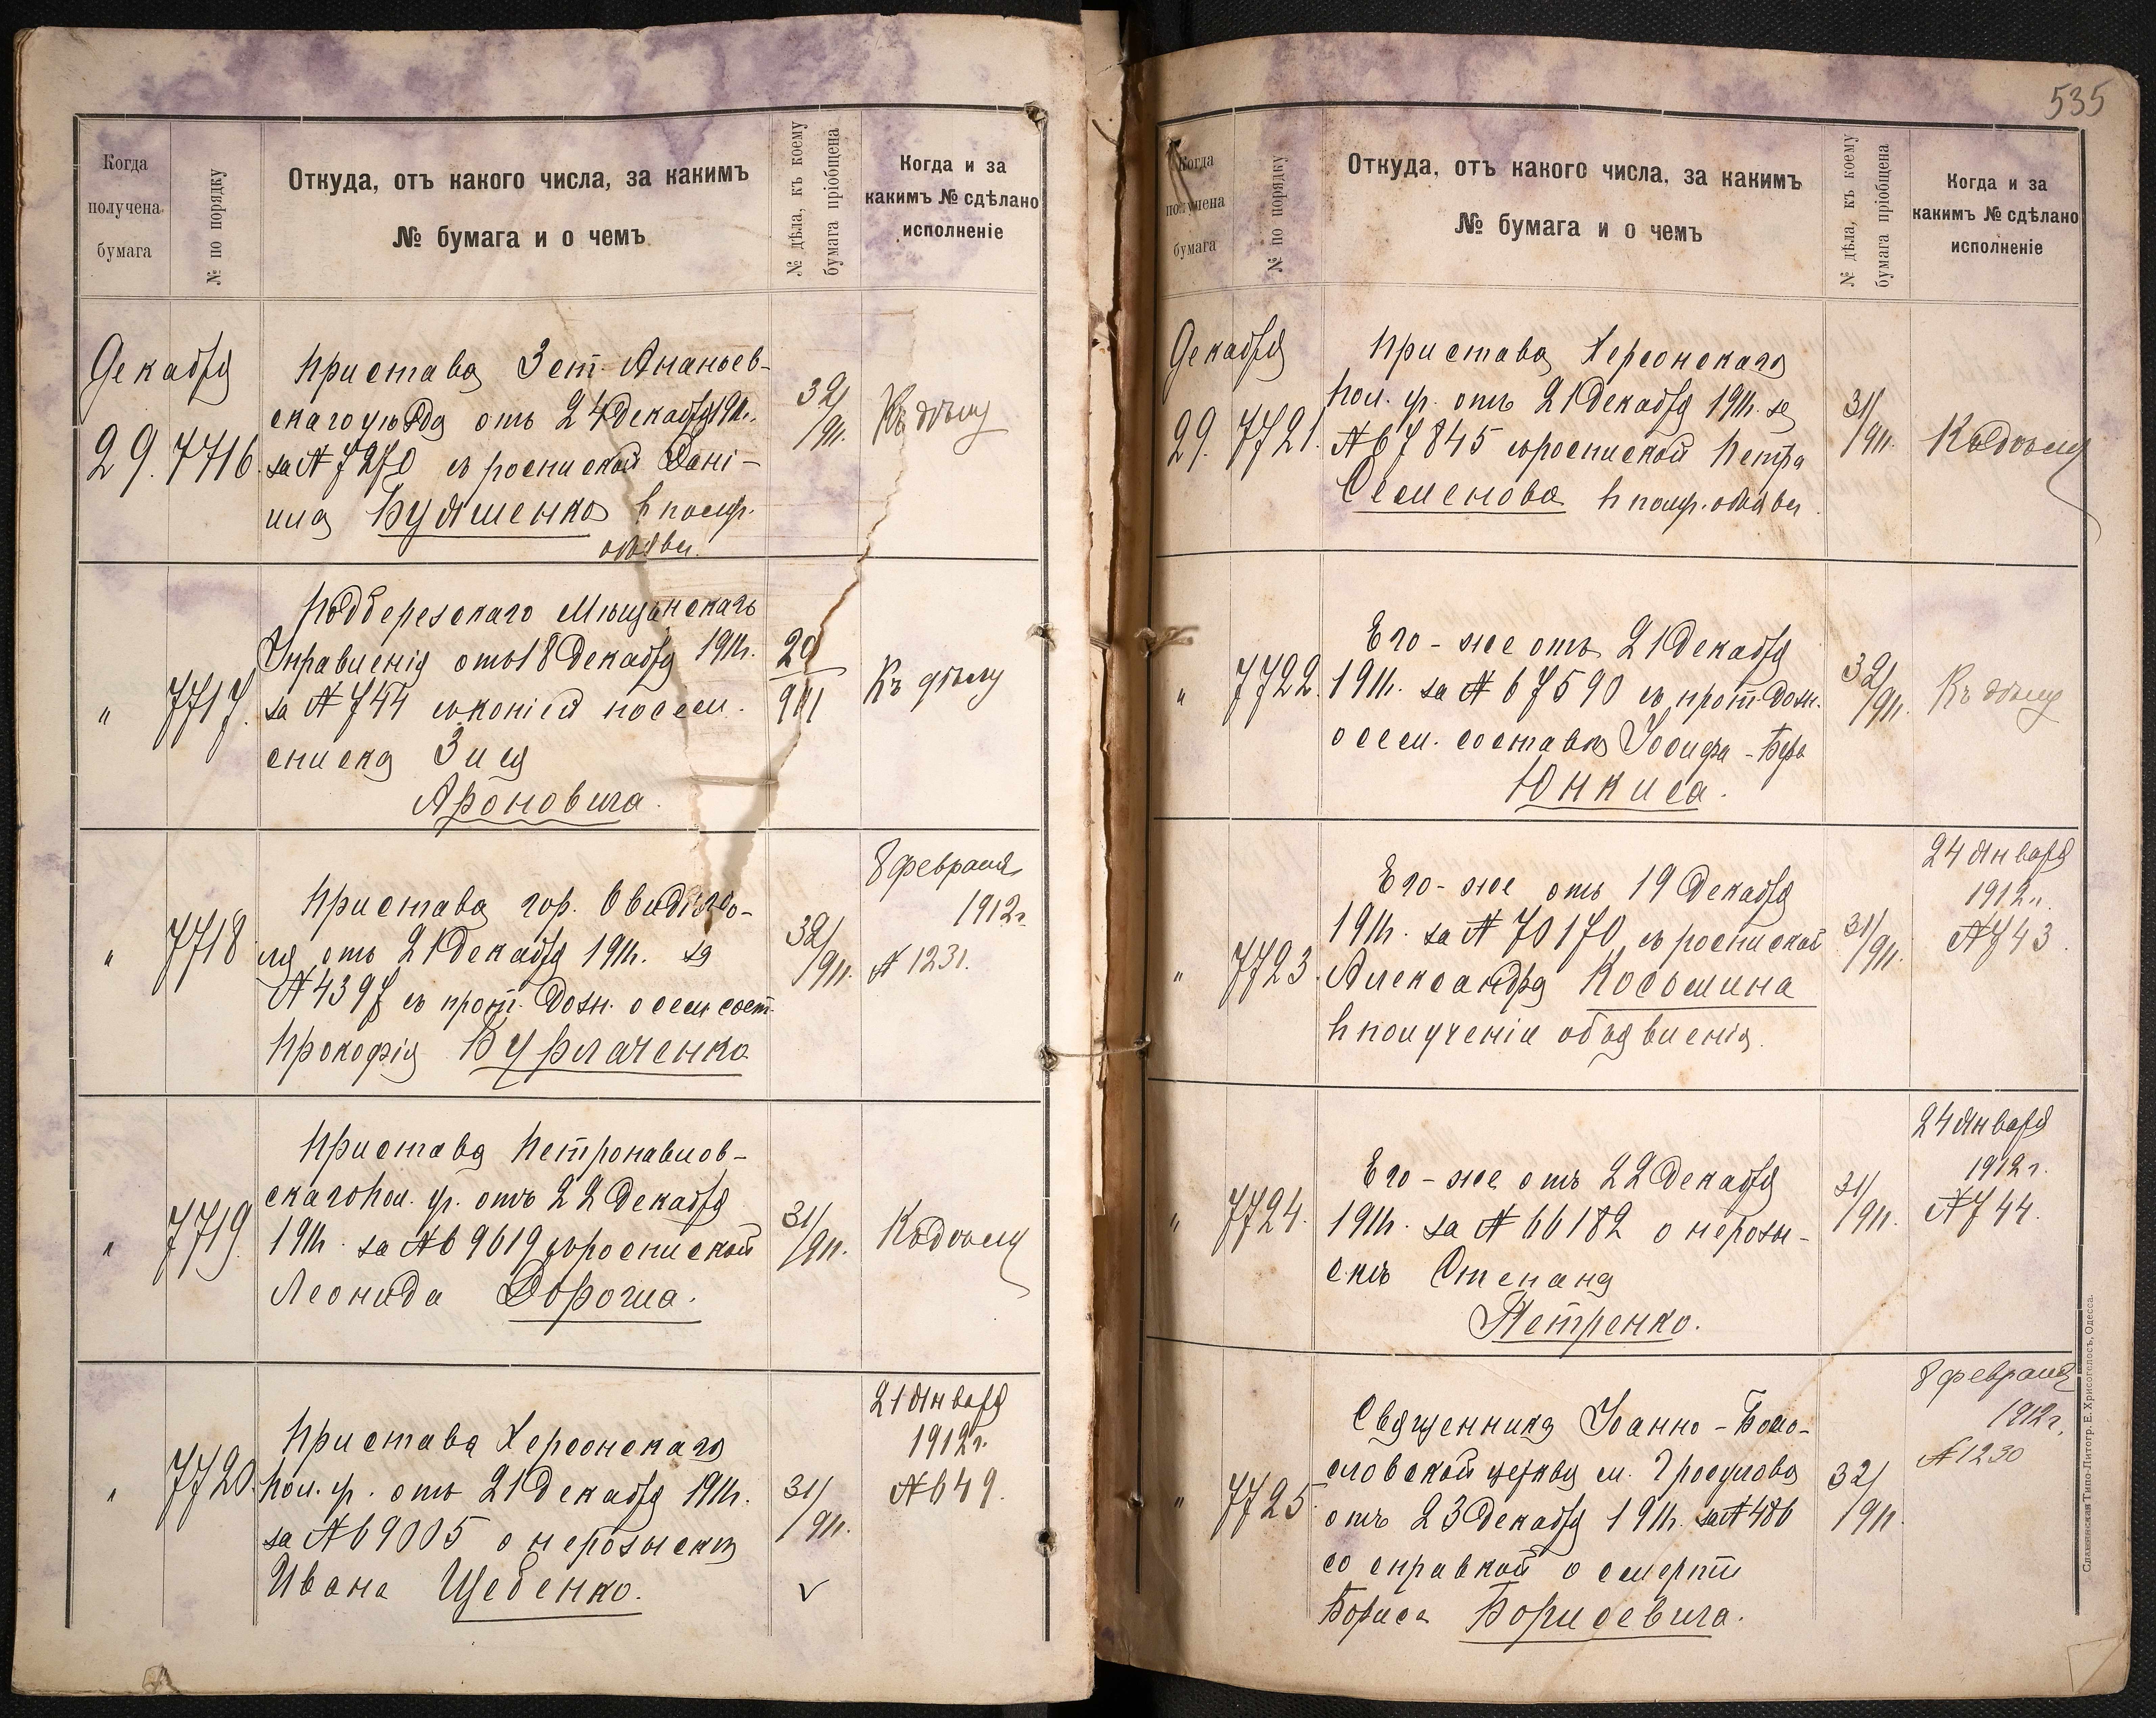 Когда
получена
бумага
№ по порядку
Откуда, отъ какого числа, за какимъ
№ бумага и о чемъ
№ дѣла, къ коему
бумага пріобщена
Когда и за
какимъ № сдѣлано
исполненіе
Декабря
29. 7716.
Пристава 3 ст. Ананьев-
скаго уѣзда отъ 24 Декабря 1911г.
за № 7270 съ роспиской Дані-
ила Будяшенко въ получ.
объявл.
32/911.
Къ дѣлу
" 7717.
Подберезскаго Мѣщанскаго
Управленія отъ 18 Декабря 1911г.
за № 744 съ копіей посем.
списка Зися
Ароновича.
20/911
Къ дѣлу
" 7718
Пристава гор. Овидіопо-
ля отъ 21 Декабря 1911г. за
№ 4397 съ прот. дозн. о сем. сост.
Прокофія Бурлаченко
32/911.
8 февраля
1912г.
№ 1231.
" 7719.
Пристава Петропавлов-
скаго пол. уч. отъ 22 Декабря
1911г. за № 69619 съ роспиской
Леонида Дороша.
31/911.
Къ дѣлу
" 7720.
Пристава Херсонскаго
пол. уч. отъ 21 Декабря 1911г.
за № 69005 о нерозыскѣ
Ивана Щебенко.
31/911.
✓
21 Января
1912г.
№ 649.
535
Когда
получена
бумага
№ по порядку
Откуда, отъ какого числа, за какимъ
№ бумага и о чемъ
№ дѣла, къ коему
бумага пріобщена
Когда и за
какимъ № сдѣлано
исполненіе
Декабря
29. 7721.
Пристава Херсонскаго
пол. уч. отъ 21 Декабря 1911г. за
№ 67845 съ роспиской Петра
Семенова въ получ. объявл.
31/911.
Къ дѣлу
" 7722.
Его-же отъ 21 Декабря
1911г. за № 67590 съ прот. дозн.
о сем. составѣ Іосифа-Бера
Юнкиса.
32/911.
Къ дѣлу
" 7723.
Его-же отъ 19 Декабря
1911г. за № 70170 съ роспиской
Александра Косьмина
въ полученіи объявленія.
31/911.
24 Января
1912г.
№ 743.
" 7724.
Его-же отъ 22 Декабря
1911г. за № 66182 о нерозы-
скѣ Степана
Петренко.
31/911.
24 Января
1912г.
№ 744.
" 7725
Священника Іоанно-Бого-
словской церкви м. Гросулова
отъ 23 Декабря 1911г. за № 486
со справкой о смерти
Бориса Борисевича.
32/911.
8 февраля
1912г.
№ 1230
Славянская Типо-Литогр. Е. Хрисогелосъ, Одесса.